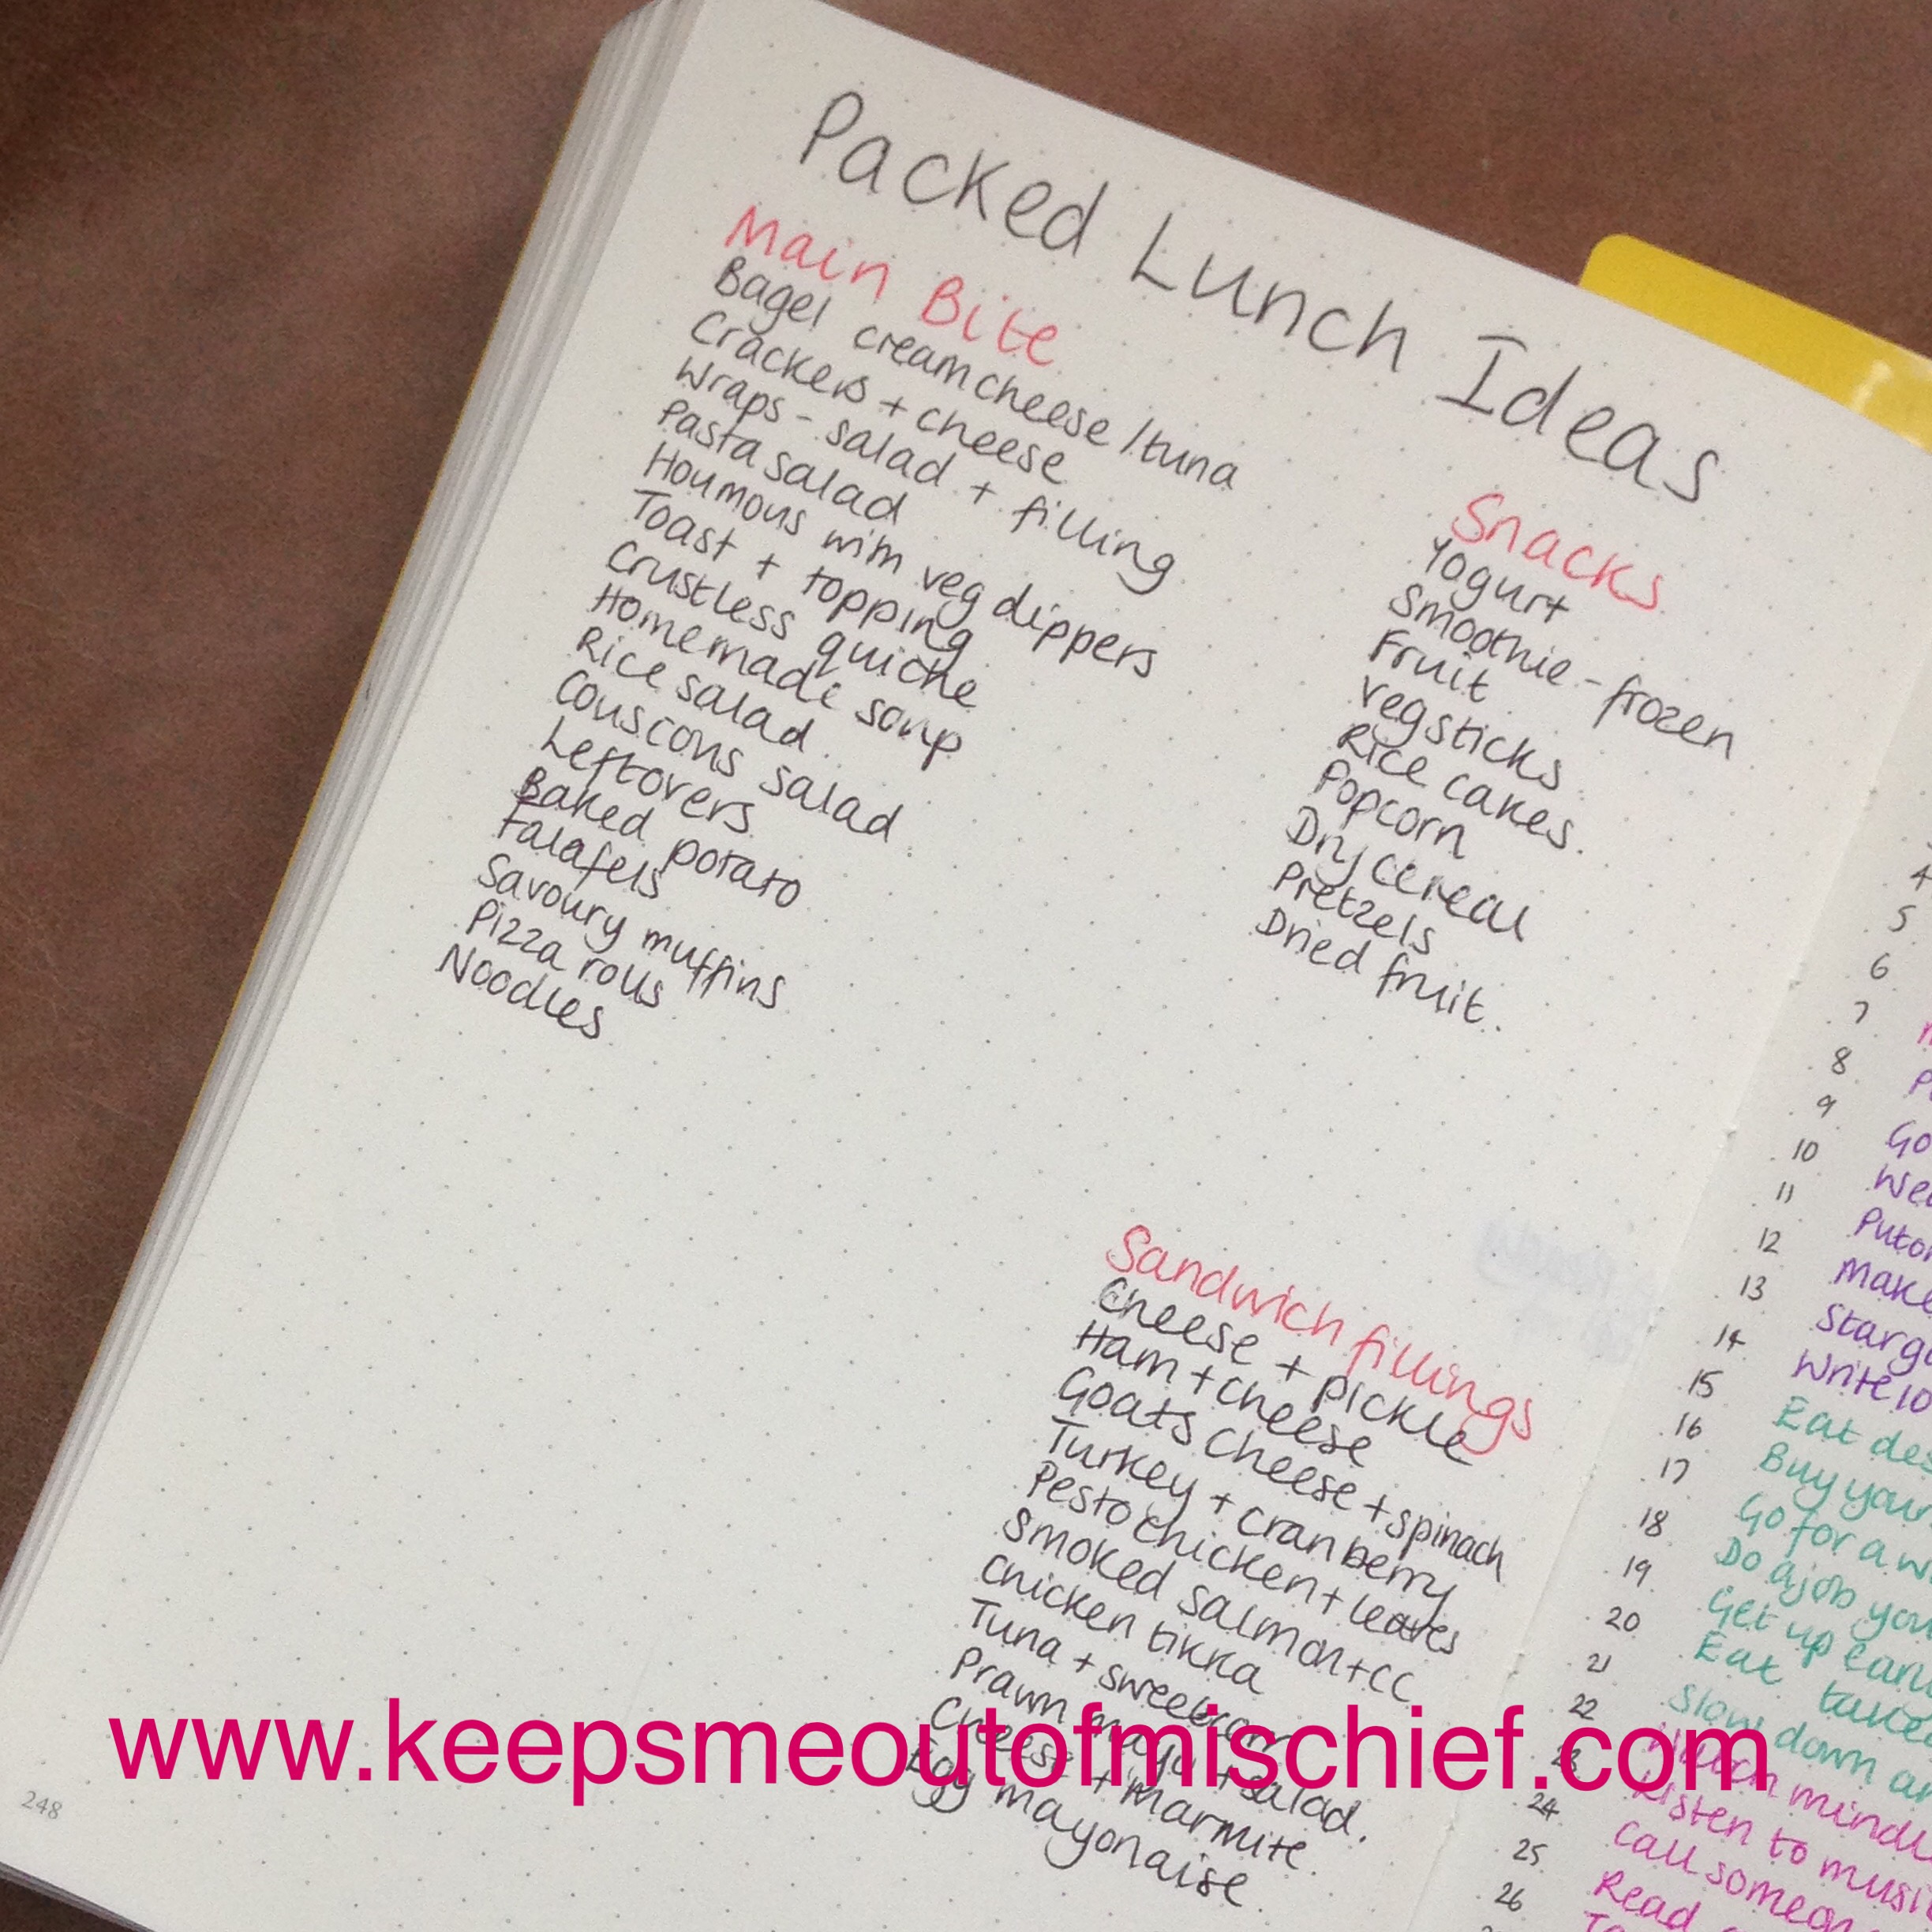 Packed Lunch Ideas
Main Bite
Bagel creamcheese / tuna
Crackers + cheese
Wraps - salad + filling
Pasta salad
Houmous with veg dippers
Toast + topping
Crustless quiche
Homemade soup
Rice salad
Couscous salad
Leftovers
Baked potato
Falafels
Savoury muffins
Pizza rolls
Noodles
Snacks
Yogurt
Smoothie - frozen
Fruit
Veg sticks
Rice cakes.
Popcorn
Dry cereal
Pretzels
Dried fruit.
Sandwich fillings
Cheese + pickle
Ham + cheese
Goats cheese + spinach
Turkey + cranberry
Pesto chicken + leaves
Smoked salmon + CC
Chicken tikka
Tuna + sweetcorn
Prawn mayo + salad.
Cheese + marmite.
Egg mayonaise
248
4
5
6
7
8
9
10 Go
11
12
13 Make
14
15 Write 10
16 Eat
17 Buy your
18 Go for a
19 Do a job you
20 Get up
21 Eat
22 Slow down
23
24 Listen to
25 Call
26 Read
www.keepsmeoutofmischief.com